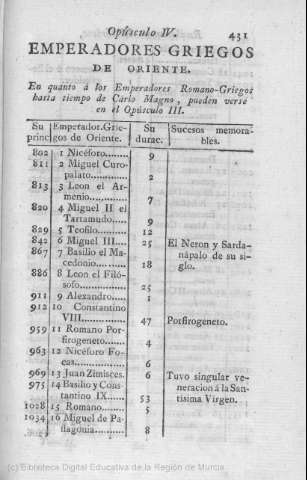 Opúsculo IV. 431
EMPERADORES GRIEGOS
DE ORIENTE.
En quanto á los Emperadores Romano-Griegos
hasta tiempo de Carlo Magno, pueden verse
en el Opúsculo III.
Su Emperador.Grie- Su Sucesos memora-
princi gos de Oriente. durac. bles.
802 1 Nicéforo... 9
811 2 Miguel Curo-
palato... 2
813 3 Leon el Ar-
menio... 7
820 4 Miguel II el
Tartamudo... 9
829 5 Teofilo... 12
842 6 Miguel III... 25 El Neron y Sarda-
867 7 Basilio el Ma- nápalo de su si-
cedonio... 18 glo.
886 8 Leon el Filó-
sofo... 25
911 9 Alexandro... 1
912 10 Constantino
VIII... 47 Porfirogeneto.
959 11 Romano Por-
firogeneto... 4
963 12 Nicéforo Fo-
cas... 6
969 13 Juan Zimisces. 6 Tuvo singular ve-
975 14 Basilio y Cons- neracion á la San-
tantino IX... 53 tísima Virgen.
1028 15 Romano... 5
1034 16 Miguel de Pa-
flagonia... 8
(c) Biblioteca Digital Educativa de la Región de Murcia